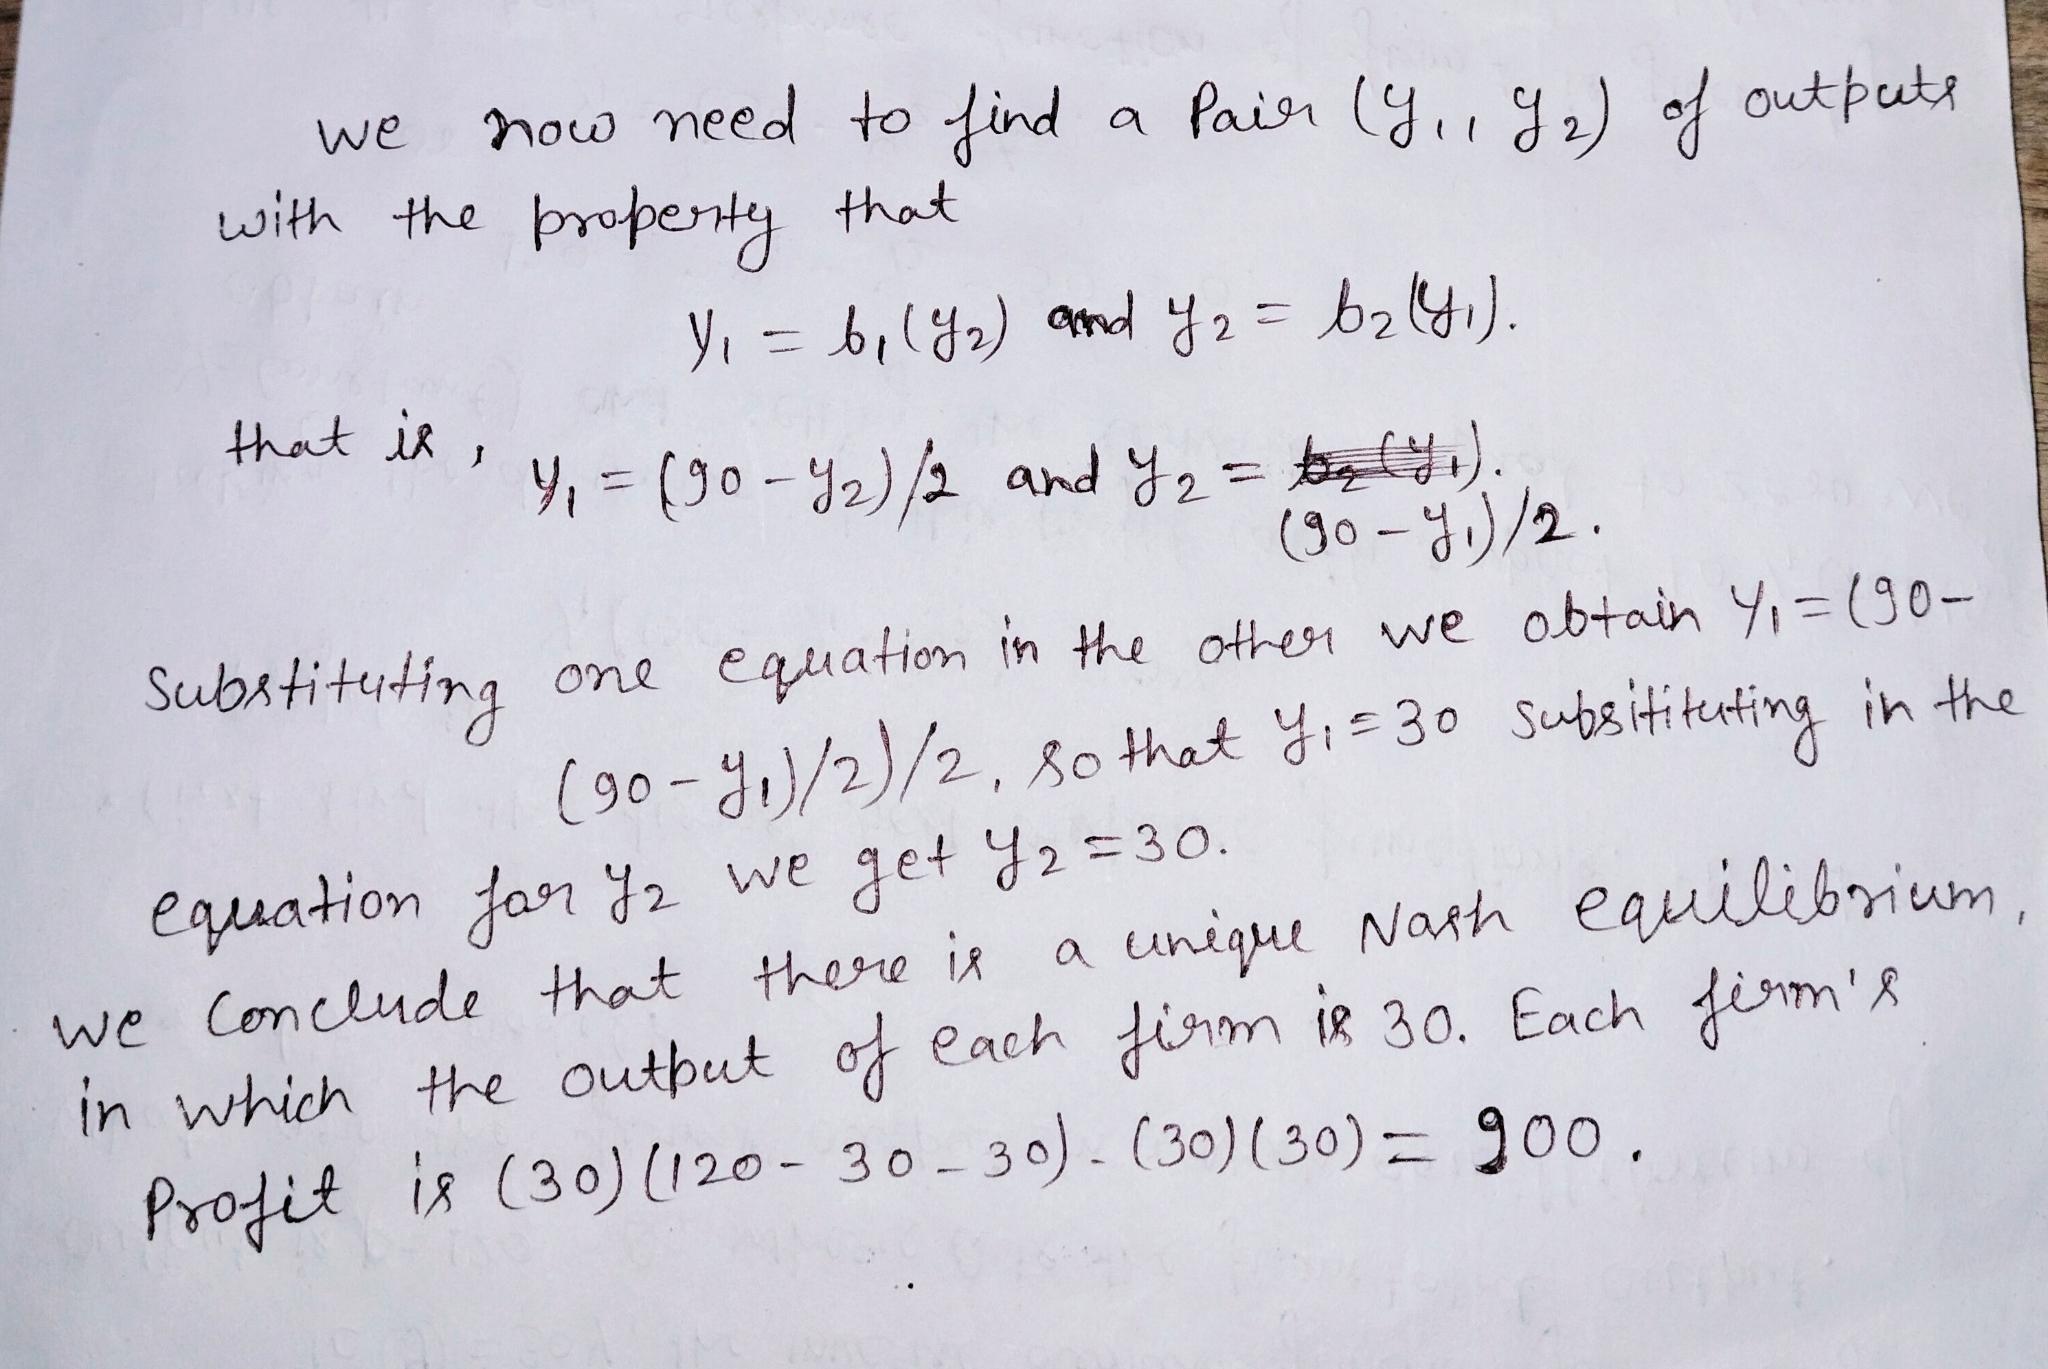 we now need to find a Pair (y₁, y₂) of outputs
with the property that
y₁ = b₁(y₂) and y₂ = b₂(y₁).
that is, y₁ = (90 - y₂)/2 and y₂ = b₂(y₁).
(90 - y₁)/2.
Substituting one equation in the other we obtain y₁ = (90-
(90 - y₁)/2)/2, so that y₁ = 30 subsitituting in the
equation for y₂ we get y₂ = 30.
we Conclude that there is a unique Nash equilibrium,
in which the output of each firm is 30. Each firm's
Profit is (30)(120 - 30 - 30) - (30)(30) = 900.